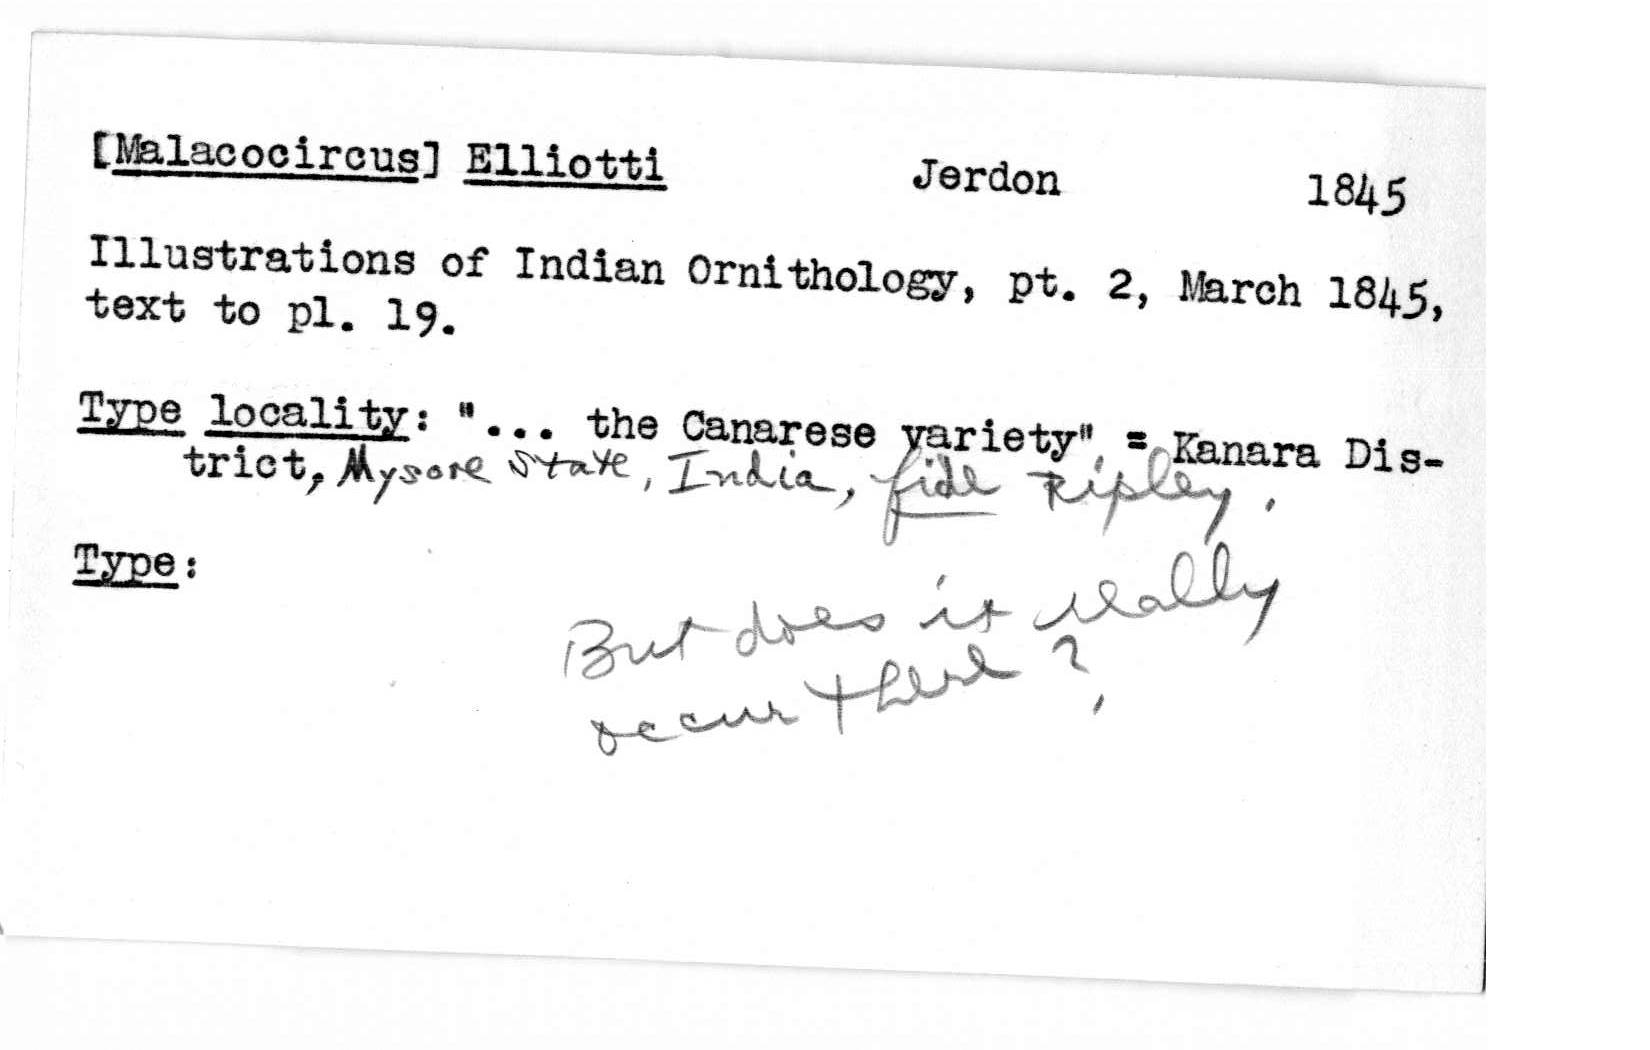 [Malacocircus] Elliotti Jerdon 1845
Illustrations of Indian Ornithology, pt. 2, March 1845,
text to pl. 19.
Type locality: "... the Canarese variety" = Kanara Dis-
trict, Mysore State, India, fide Ripley.
Type:
But does it really
occur there?